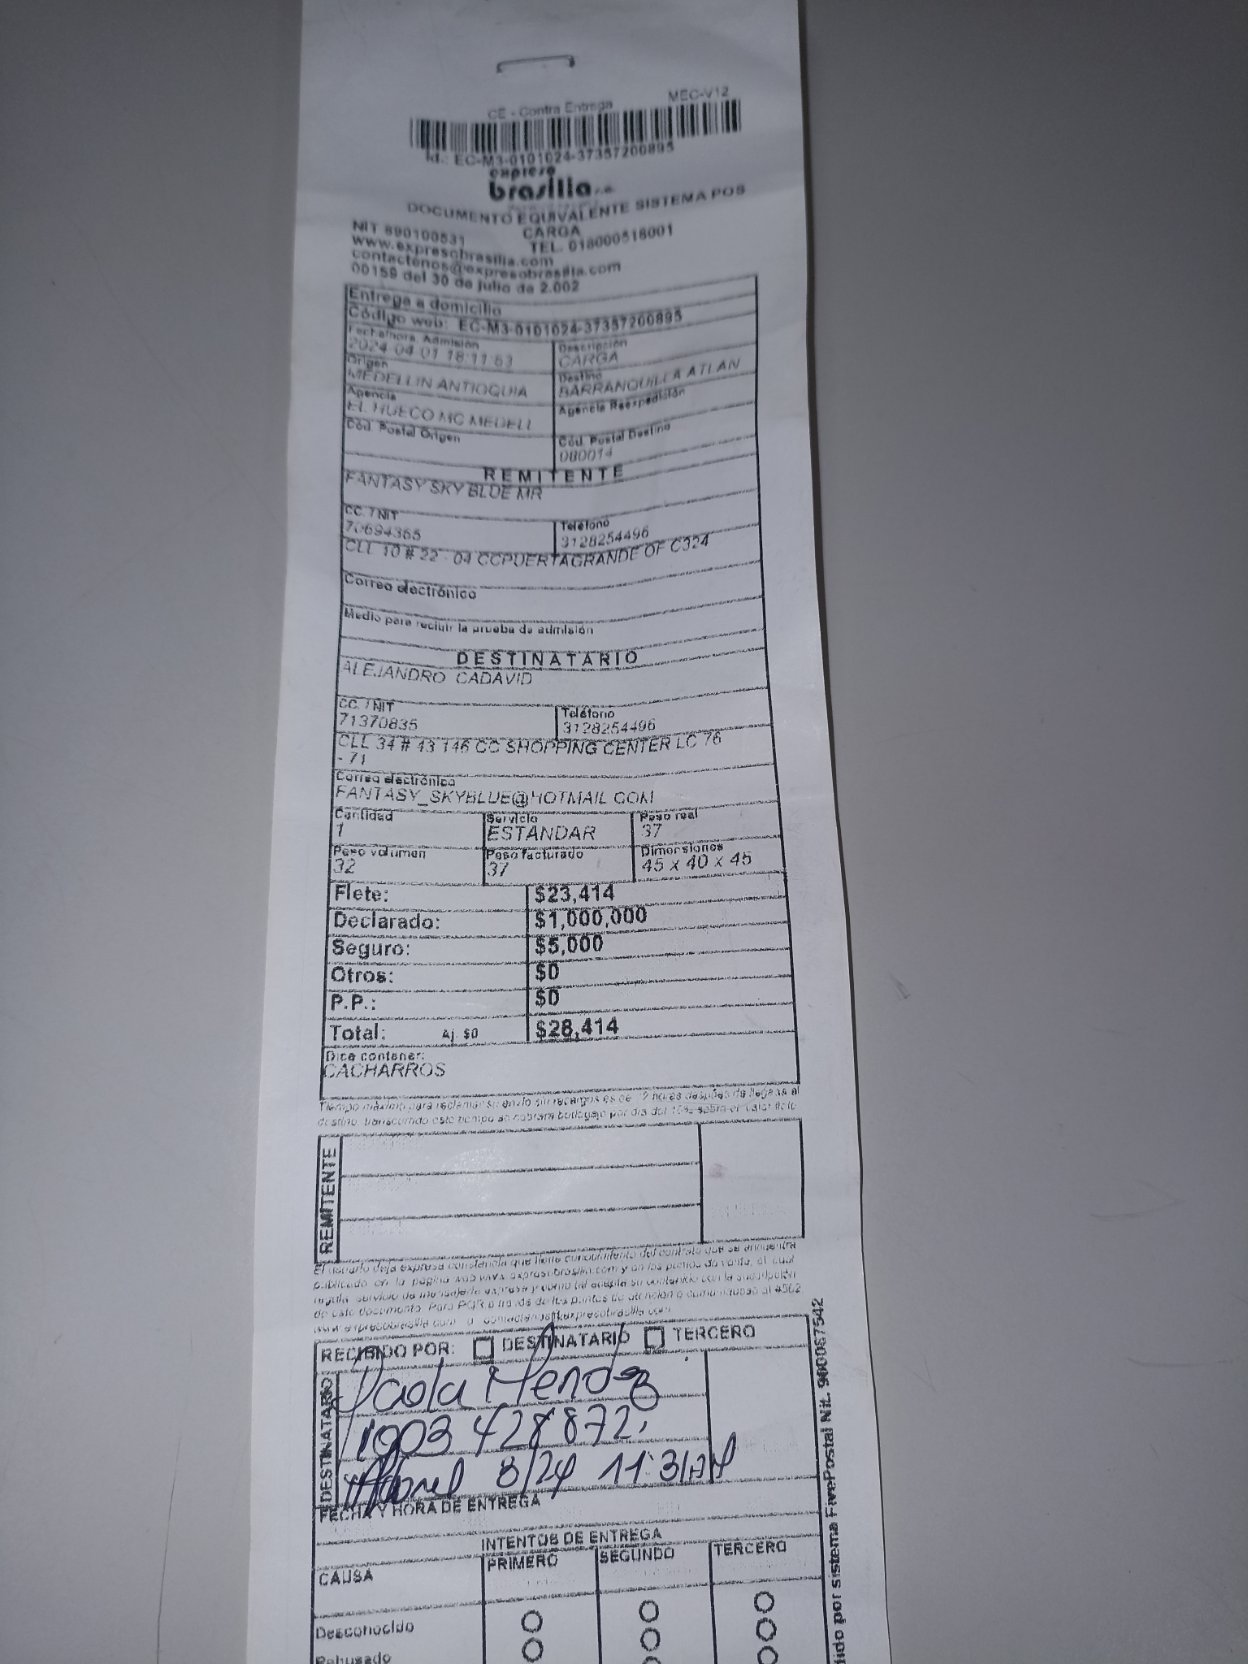 CE - Contra Entrega MEC-V12
Id.: EC-M3-0101024-37357200895
expreso
brasilia s.a.
DOCUMENTO EQUIVALENTE SISTEMA POS
CARGA
NIT 890100531 TEL. 018000518001
www.expresobrasilia.com
contactenos@expresobrasilia.com
00159 del 30 de julio de 2.002
Entrega a domicilio
Código web: EC-M3-0101024-37357200895
Fecha/hora Admisión Descripción
2024-04-01 18:11:53 CARGA
Origen Destino
MEDELLIN ANTIOQUIA BARRANQUILLA ATLAN
Agencia Agencia Reexpedición
EL HUECO MC MEDELL
Cód. Postal Origen Cód. Postal Destino
080014
REMITENTE
FANTASY SKY BLUE MR
CC. / NIT Teléfono
70694365 3128254496
CLL 10 # 22 - 04 CCPUERTAGRANDE OF C324
Correo electrónico
Medio para recibir la prueba de admisión
DESTINATARIO
ALEJANDRO CADAVID
CC. / NIT Teléfono
71370835 3128254496
CLL 34 # 43 146 CC SHOPPING CENTER LC 76
- 71
Correo electrónico
FANTASY_SKYBLUE@HOTMAIL.COM
Cantidad Servicio Peso real
1 ESTANDAR 37
Peso volumen Peso facturado Dimensiones
32 37 45 x 40 x 45
Flete: $23,414
Declarado: $1,000,000
Seguro: $5,000
Otros: $0
P.P.: $0
Total: Aj. $0 $28,414
Dice contener:
CACHARROS
Tiempo máximo para reclamar su envío sin recargos es de 72 horas después de llegada al
destino, transcurrido este tiempo se cobrara bodegaje por día del 10% sobre el valor flete
REMITENTE
El usuario deja expresa constancia que tiene conocimiento del contrato que se encuentra
publicado en la página web www.expresobrasilia.com y en los puntos de venta, el cual
regula servicio de mensajería expresa y como tal acepta su contenido con la suscripción
de este documento. Para PQR a través de los puntos de atención o comuníquese al #502
www.expresobrasilia.com o contactenos@expresobrasilia.com
RECIBIDO POR: DESTINATARIO TERCERO
DESTINATARIO
Paola Mendez
1003 428872
Abril 8/24 11:31AM
FECHA Y HORA DE ENTREGA
INTENTOS DE ENTREGA
CAUSA PRIMERO SEGUNDO TERCERO
Desconocido
Rehusado
tido por sistema FivePostal Nit. 900087542